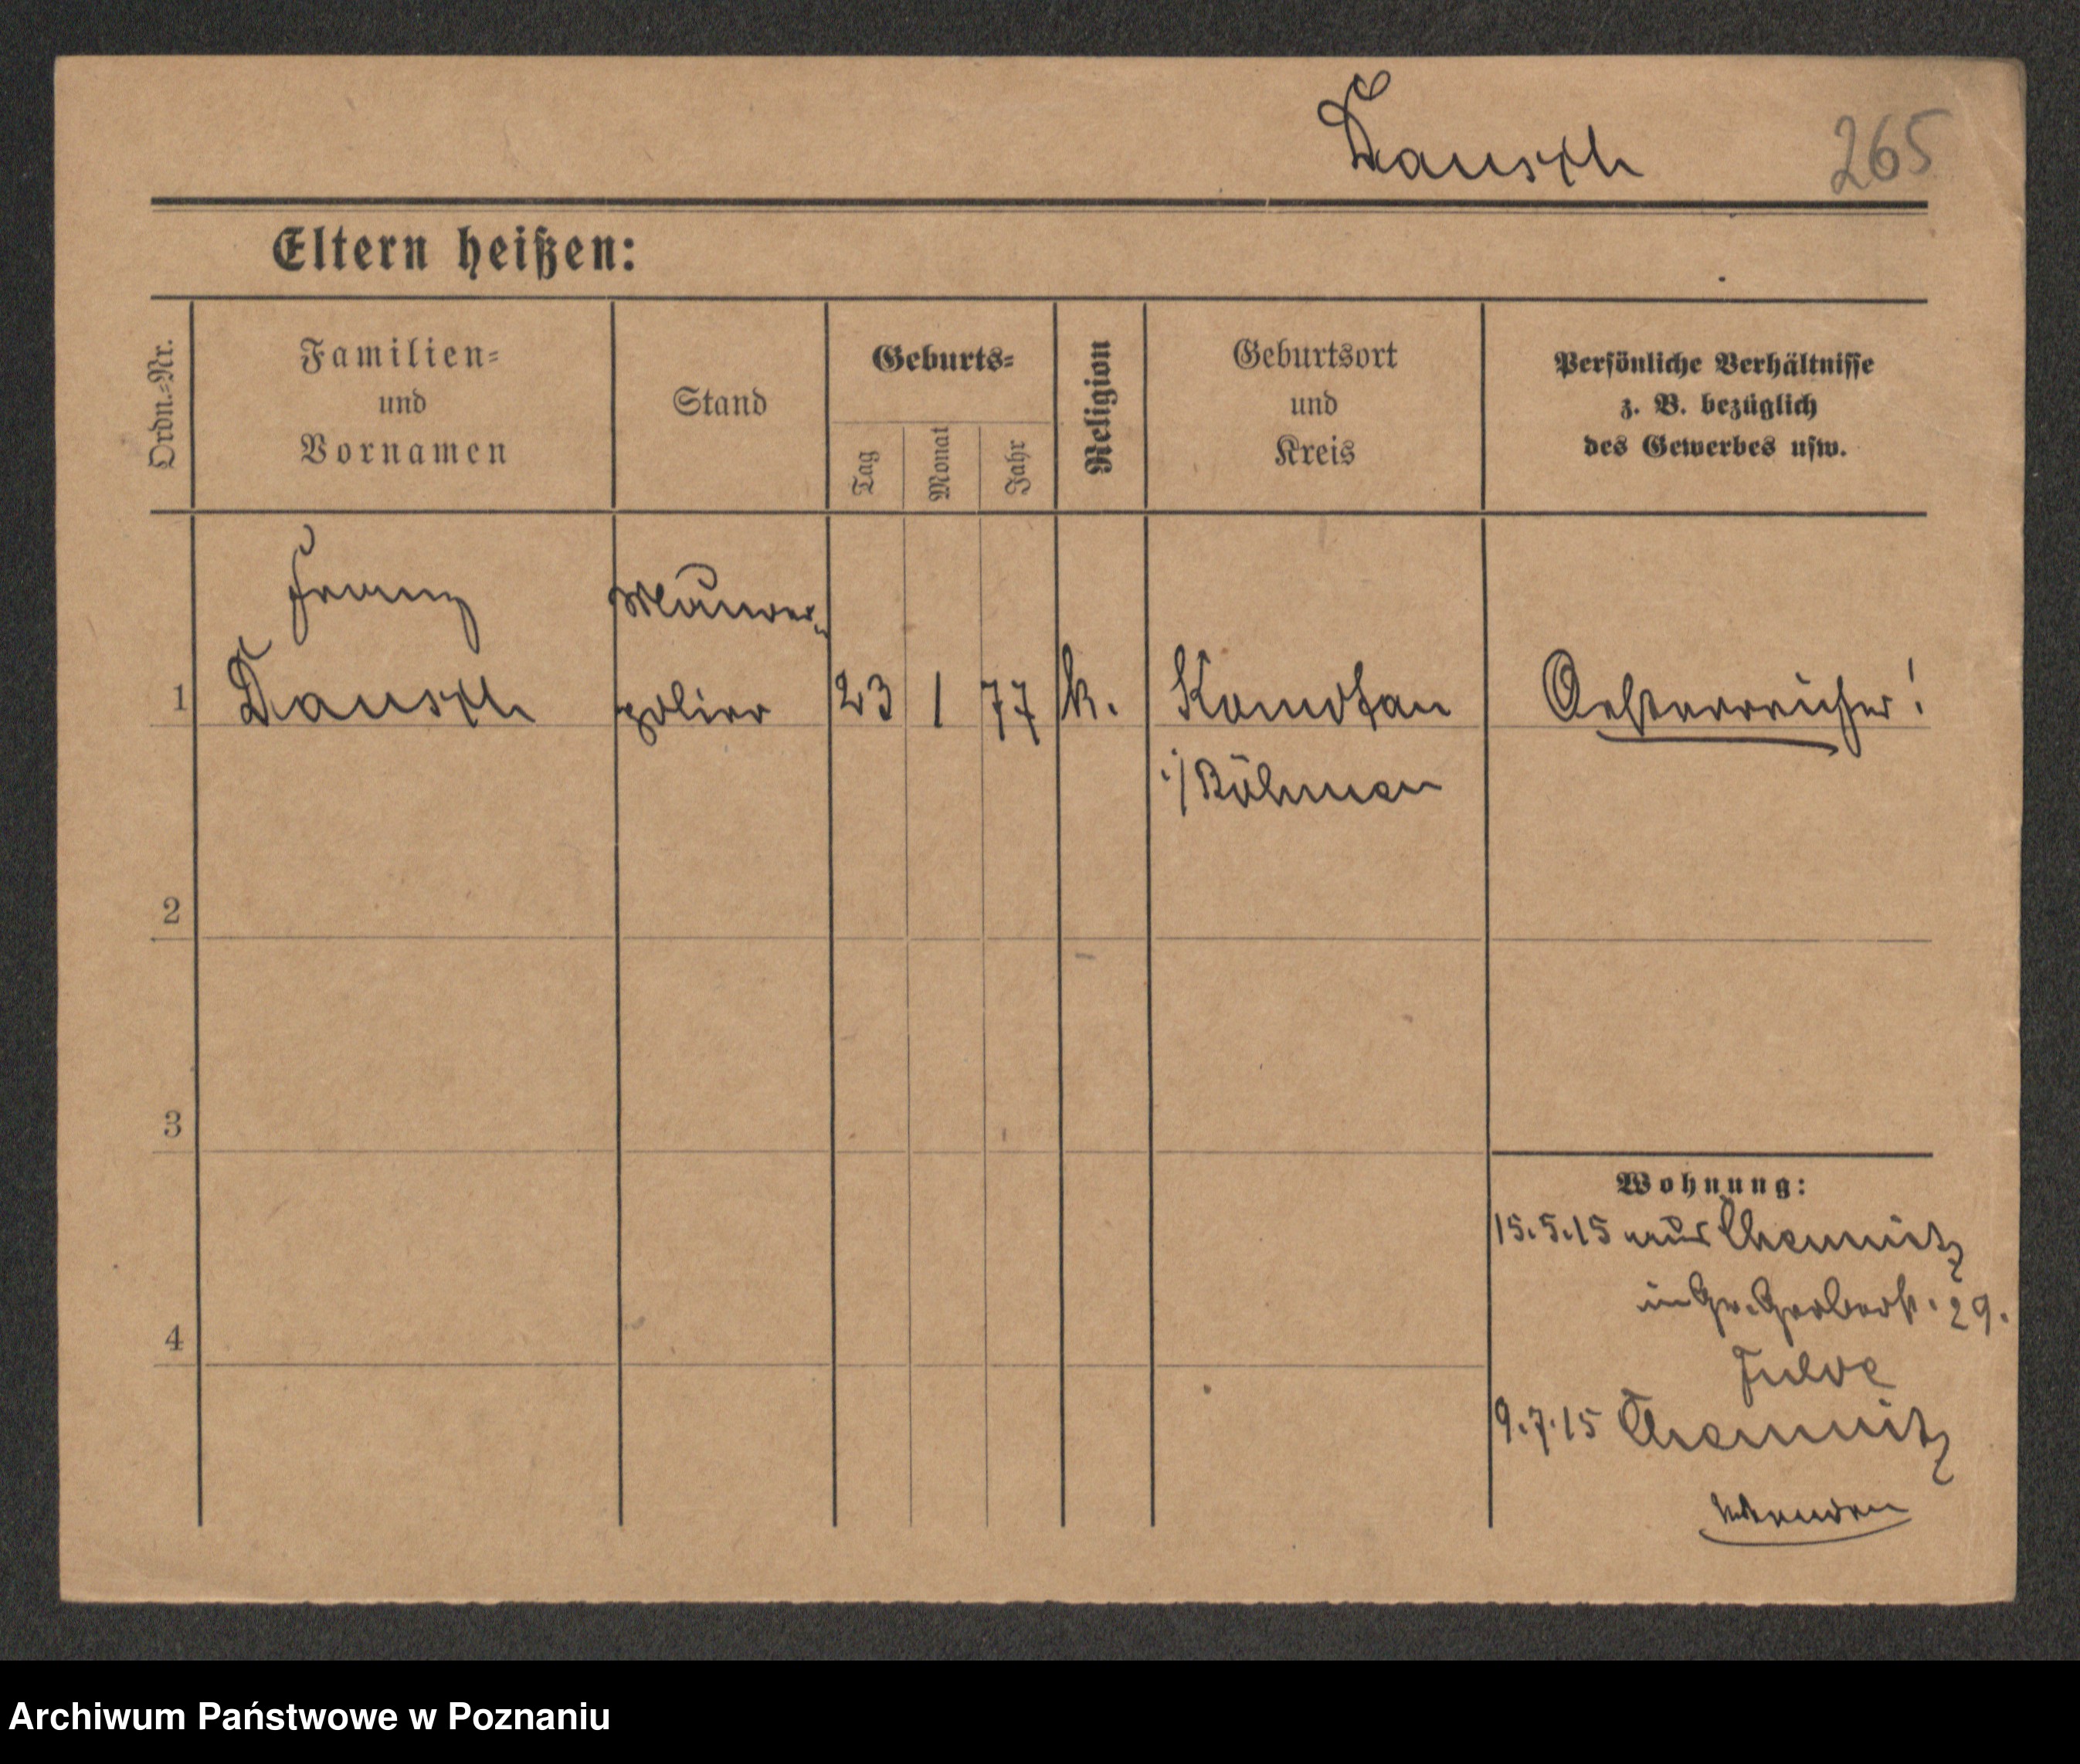 Dausch
265
Eltern heißen:
Ordn.-Nr.
Familien-
und
Vornamen
Stand
Geburts-
Tag
Monat
Jahr
Religion
Geburtsort
und
Kreis
Persönliche Verhältnisse
z. B. bezüglich
des Gewerbes usw.
1
Franz
Dausch
Maurer-
polier
23
1
77
k.
Komotau
i/Böhmen
Oesterreicher!
2
3
4
Wohnung:
15.5.15 aus Chemnitz
in Gr. Gerberst. 29.
9.7.15 Chemnitz
Archiwum Państwowe w Poznaniu